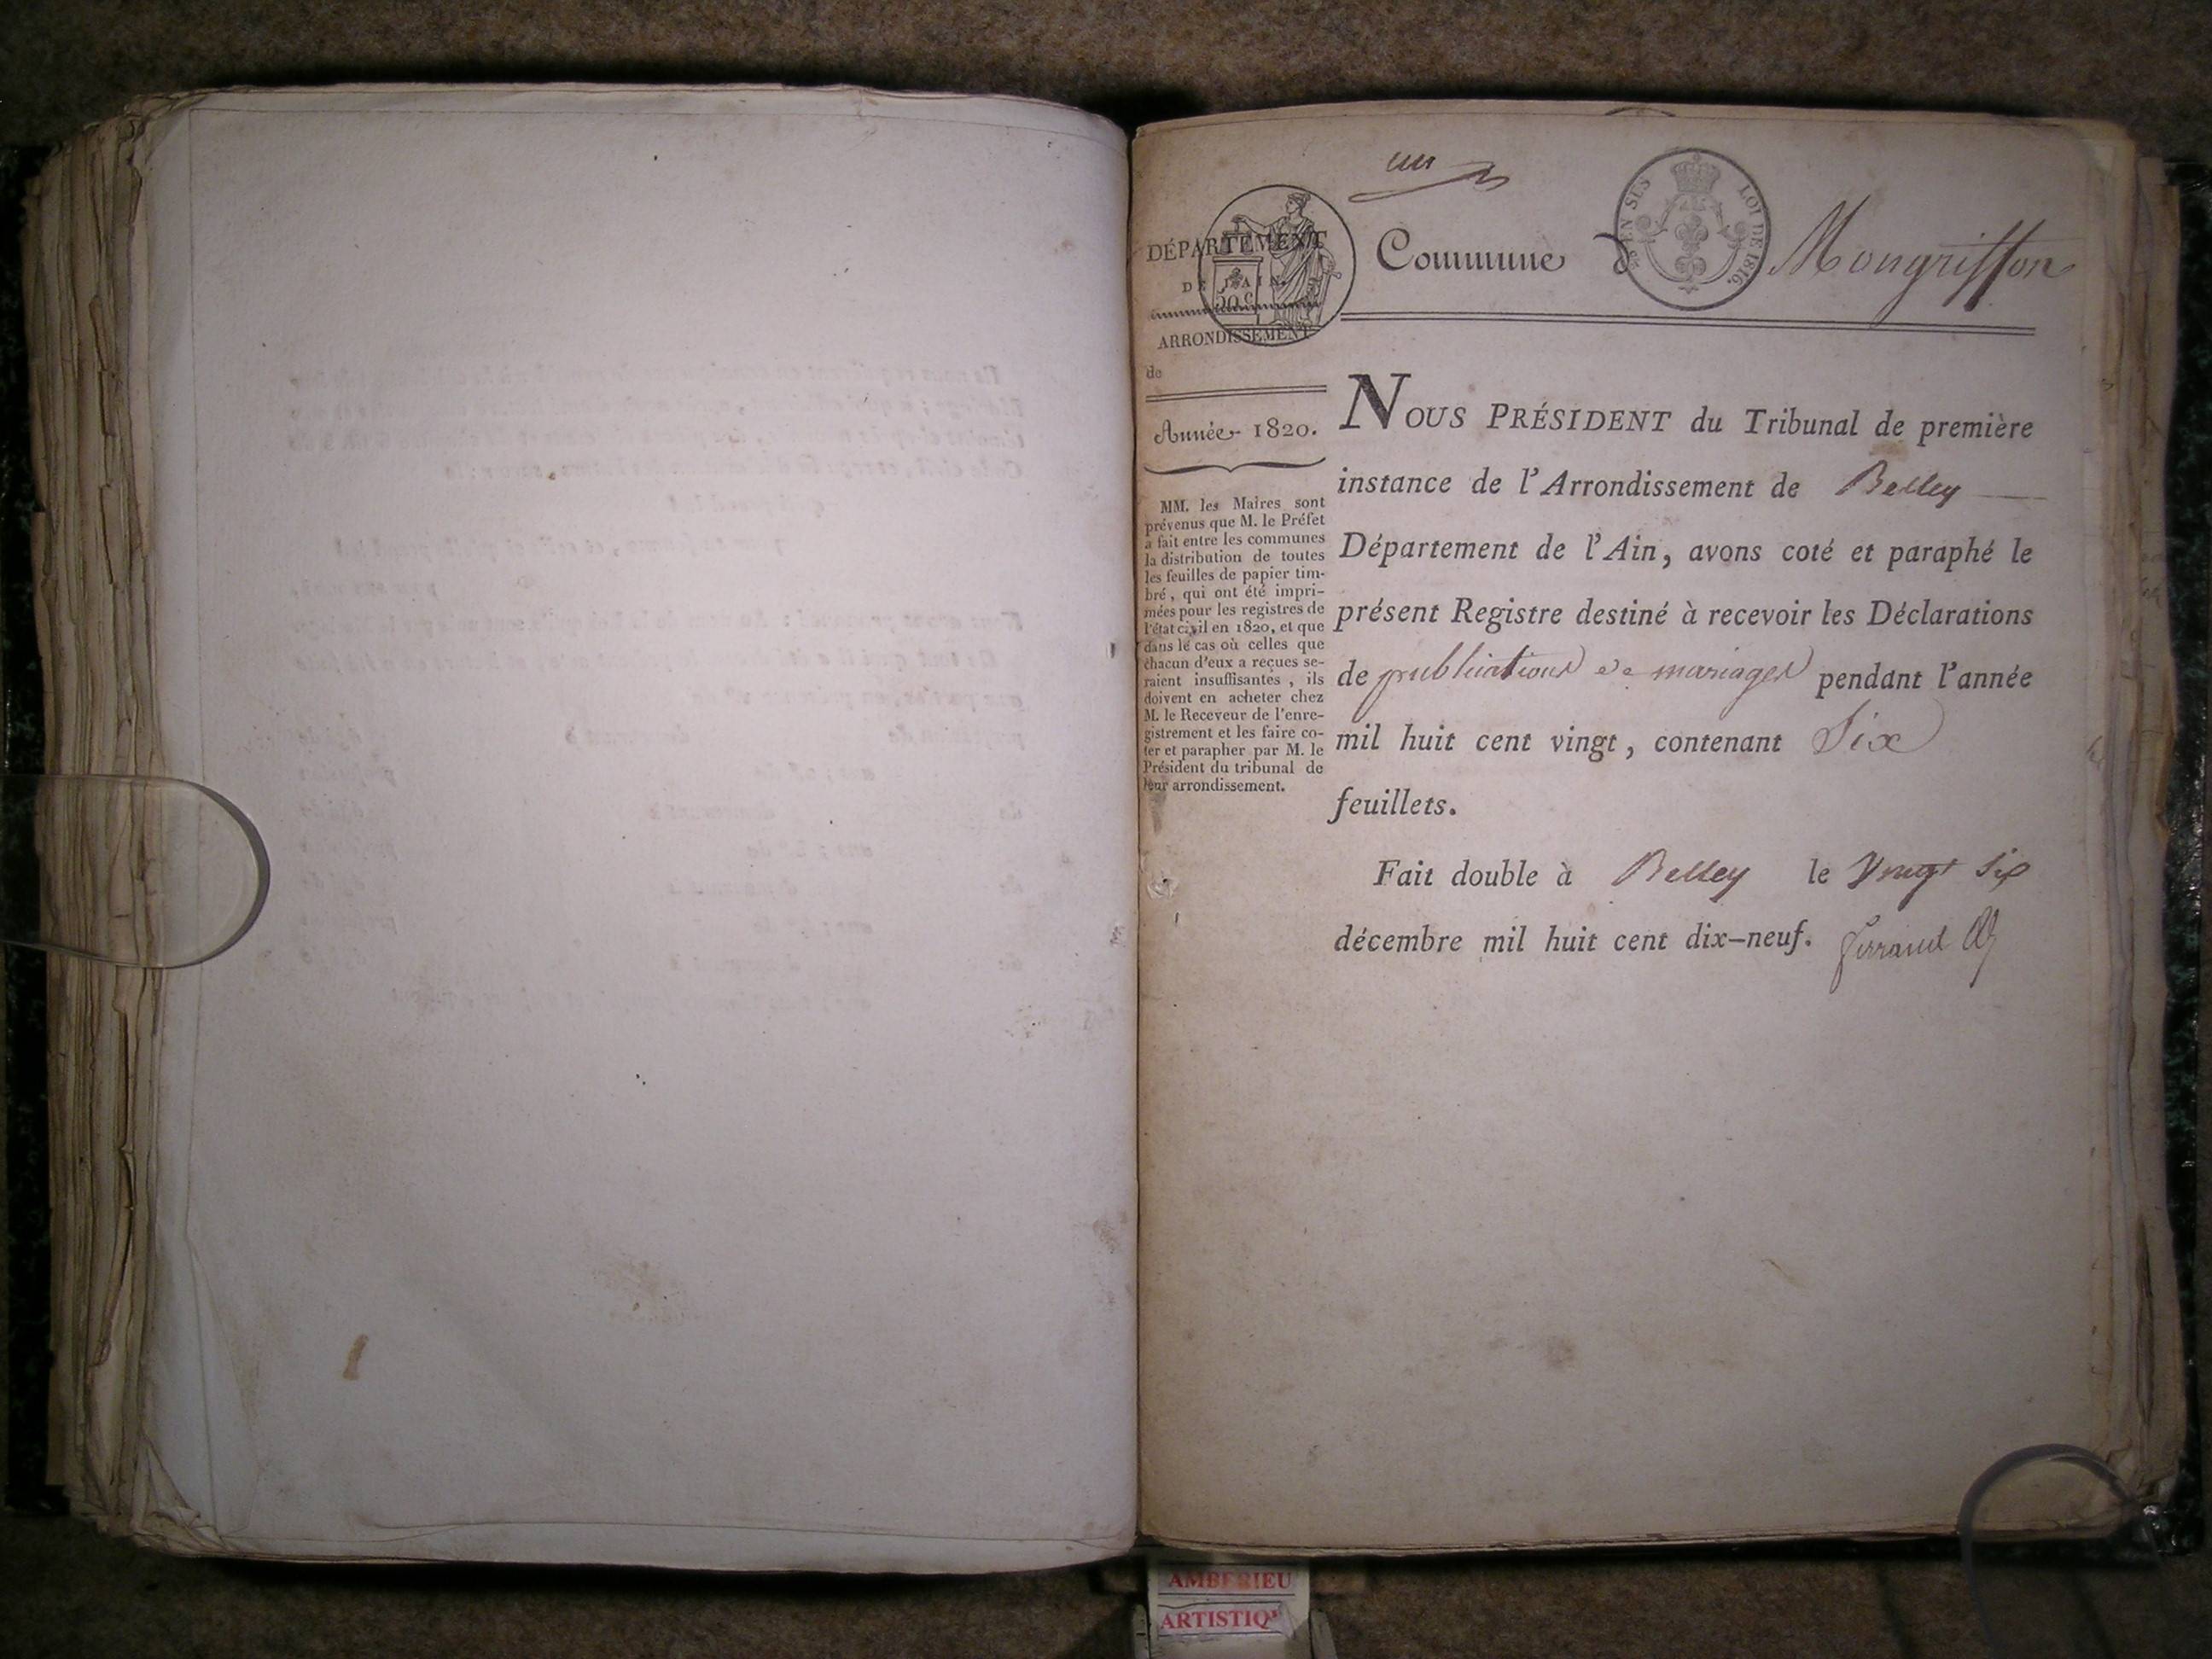 un
DÉPARTEMENT
DE L'AIN.
ARRONDISSEMENT
de
Commune de Mongriffon
EN SUS
LOI DE 1816.
Année 1820.
MM. les Maires sont
prévenus que M. le Préfet
a fait entre les communes
la distribution de toutes
les feuilles de papier tim-
bré, qui ont été impri-
mées pour les registres de
l'état civil en 1820, et que
dans le cas où celles que
chacun d'eux a reçues se-
raient insuffisantes, ils
doivent en acheter chez
M. le Receveur de l'enre-
gistrement et les faire co-
ter et parapher par M. le
Président du tribunal de
leur arrondissement.
NOUS PRÉSIDENT du Tribunal de première
instance de l'Arrondissement de Belley
Département de l'Ain, avons coté et paraphé le
présent Registre destiné à recevoir les Déclarations
de publications de mariages pendant l'année
mil huit cent vingt, contenant Six
feuillets.
Fait double à Belley le Vingt Six
décembre mil huit cent dix-neuf.
AMBERIEU
ARTISTIQ